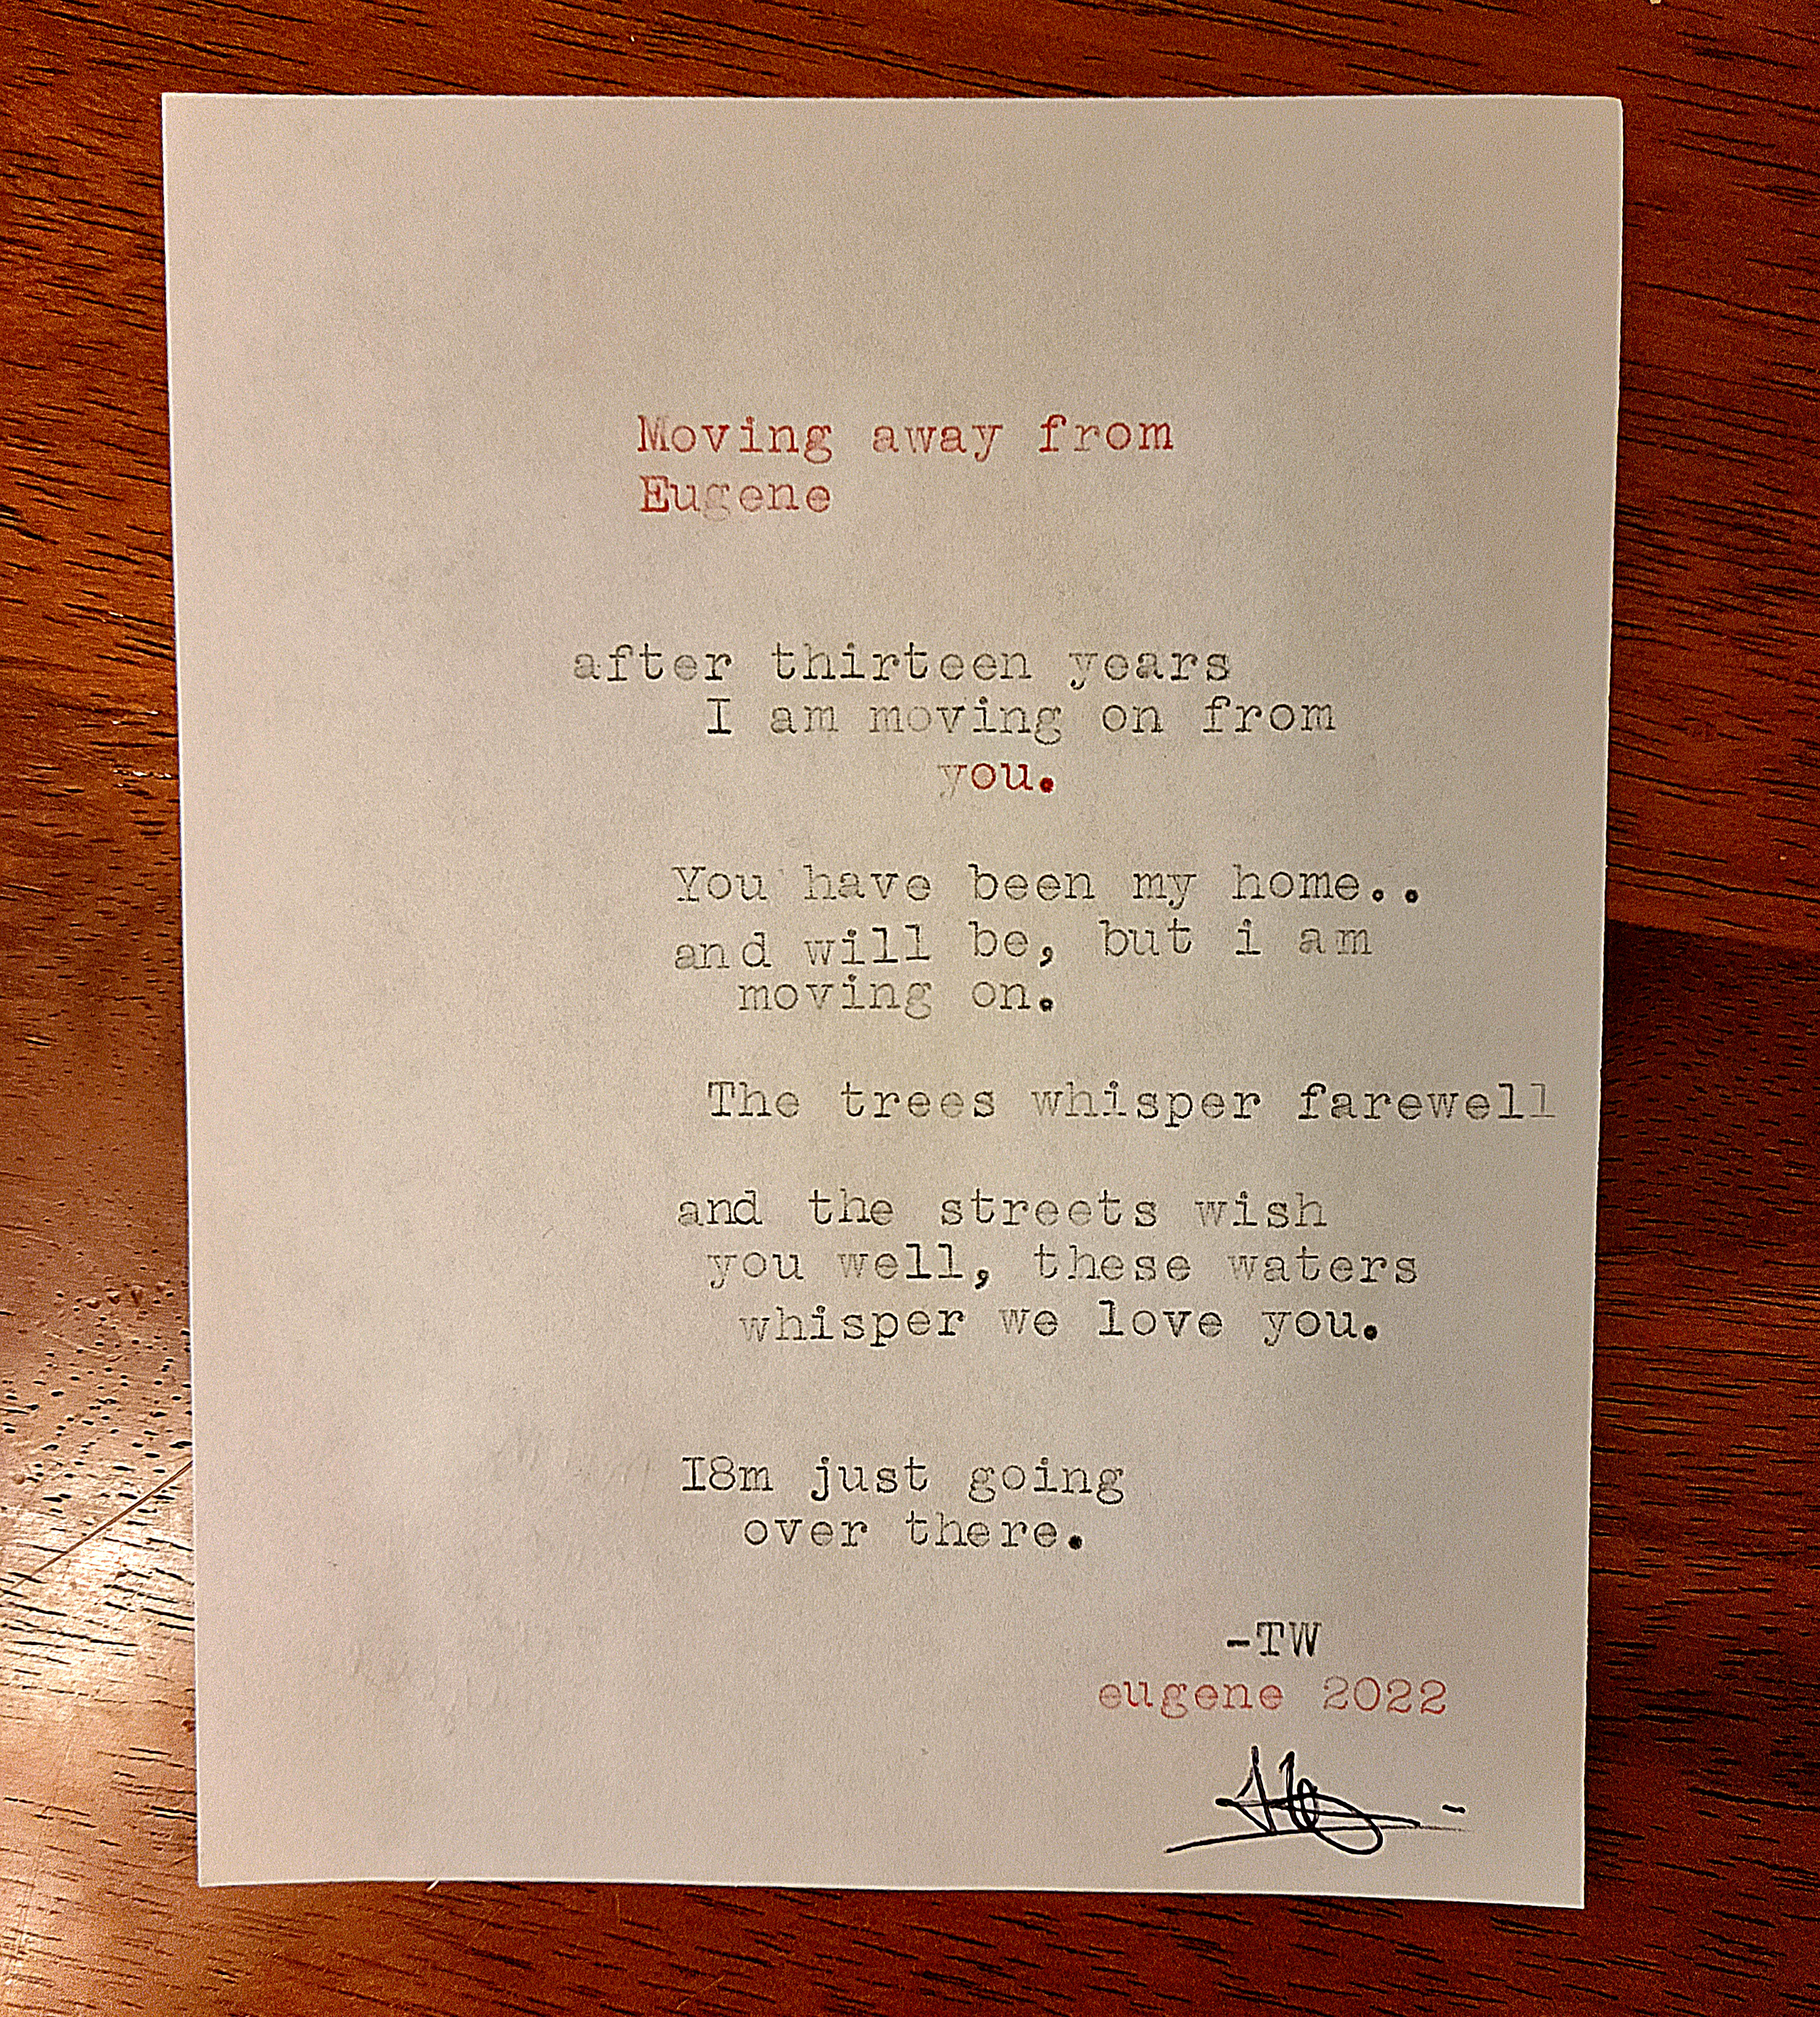 Moving away from
Eugene
after thirteen years
I am moving on from
you.
You have been my home..
and will be, but i am
moving on.
The trees whisper farewell
and the streets wish
you well, these waters
whisper we love you.
I8m just going
over there.
-TW
eugene 2022